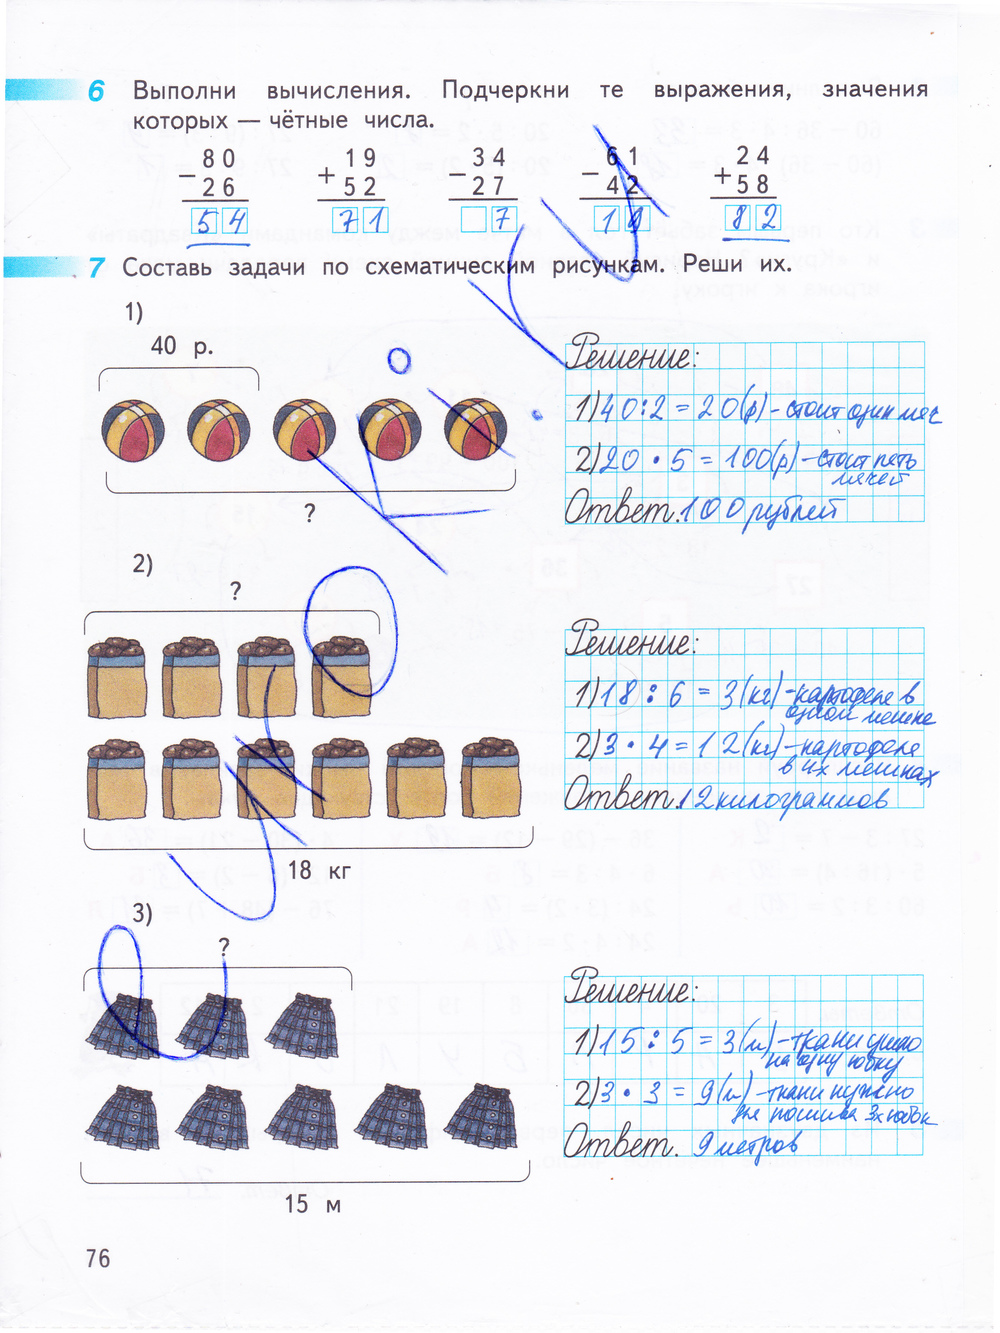 6 Выполни вычисления. Подчеркни те выражения, значения
которых — чётные числа.
80 19 34 61 24
− 26 + 52 − 27 − 42 + 58
54 71 7 19 82
7 Составь задачи по схематическим рисункам. Реши их.
1)
40 р.
?
Решение:
1) 40 : 2 = 20 (р) - стоит один мяч
2) 20 · 5 = 100 (р) - стоит пять
мячей
Ответ. 100 рублей
2)
?
18 кг
Решение:
1) 18 : 6 = 3 (кг) - картофеля в
одном мешке
2) 3 · 4 = 12 (кг) - картофеля
в их мешках
Ответ. 12 килограммов
3)
?
15 м
Решение:
1) 15 : 5 = 3 (м) - ткани ушло
на одну юбку
2) 3 · 3 = 9 (м) - ткани нужно
для пошива 3х юбок
Ответ. 9 метров
76